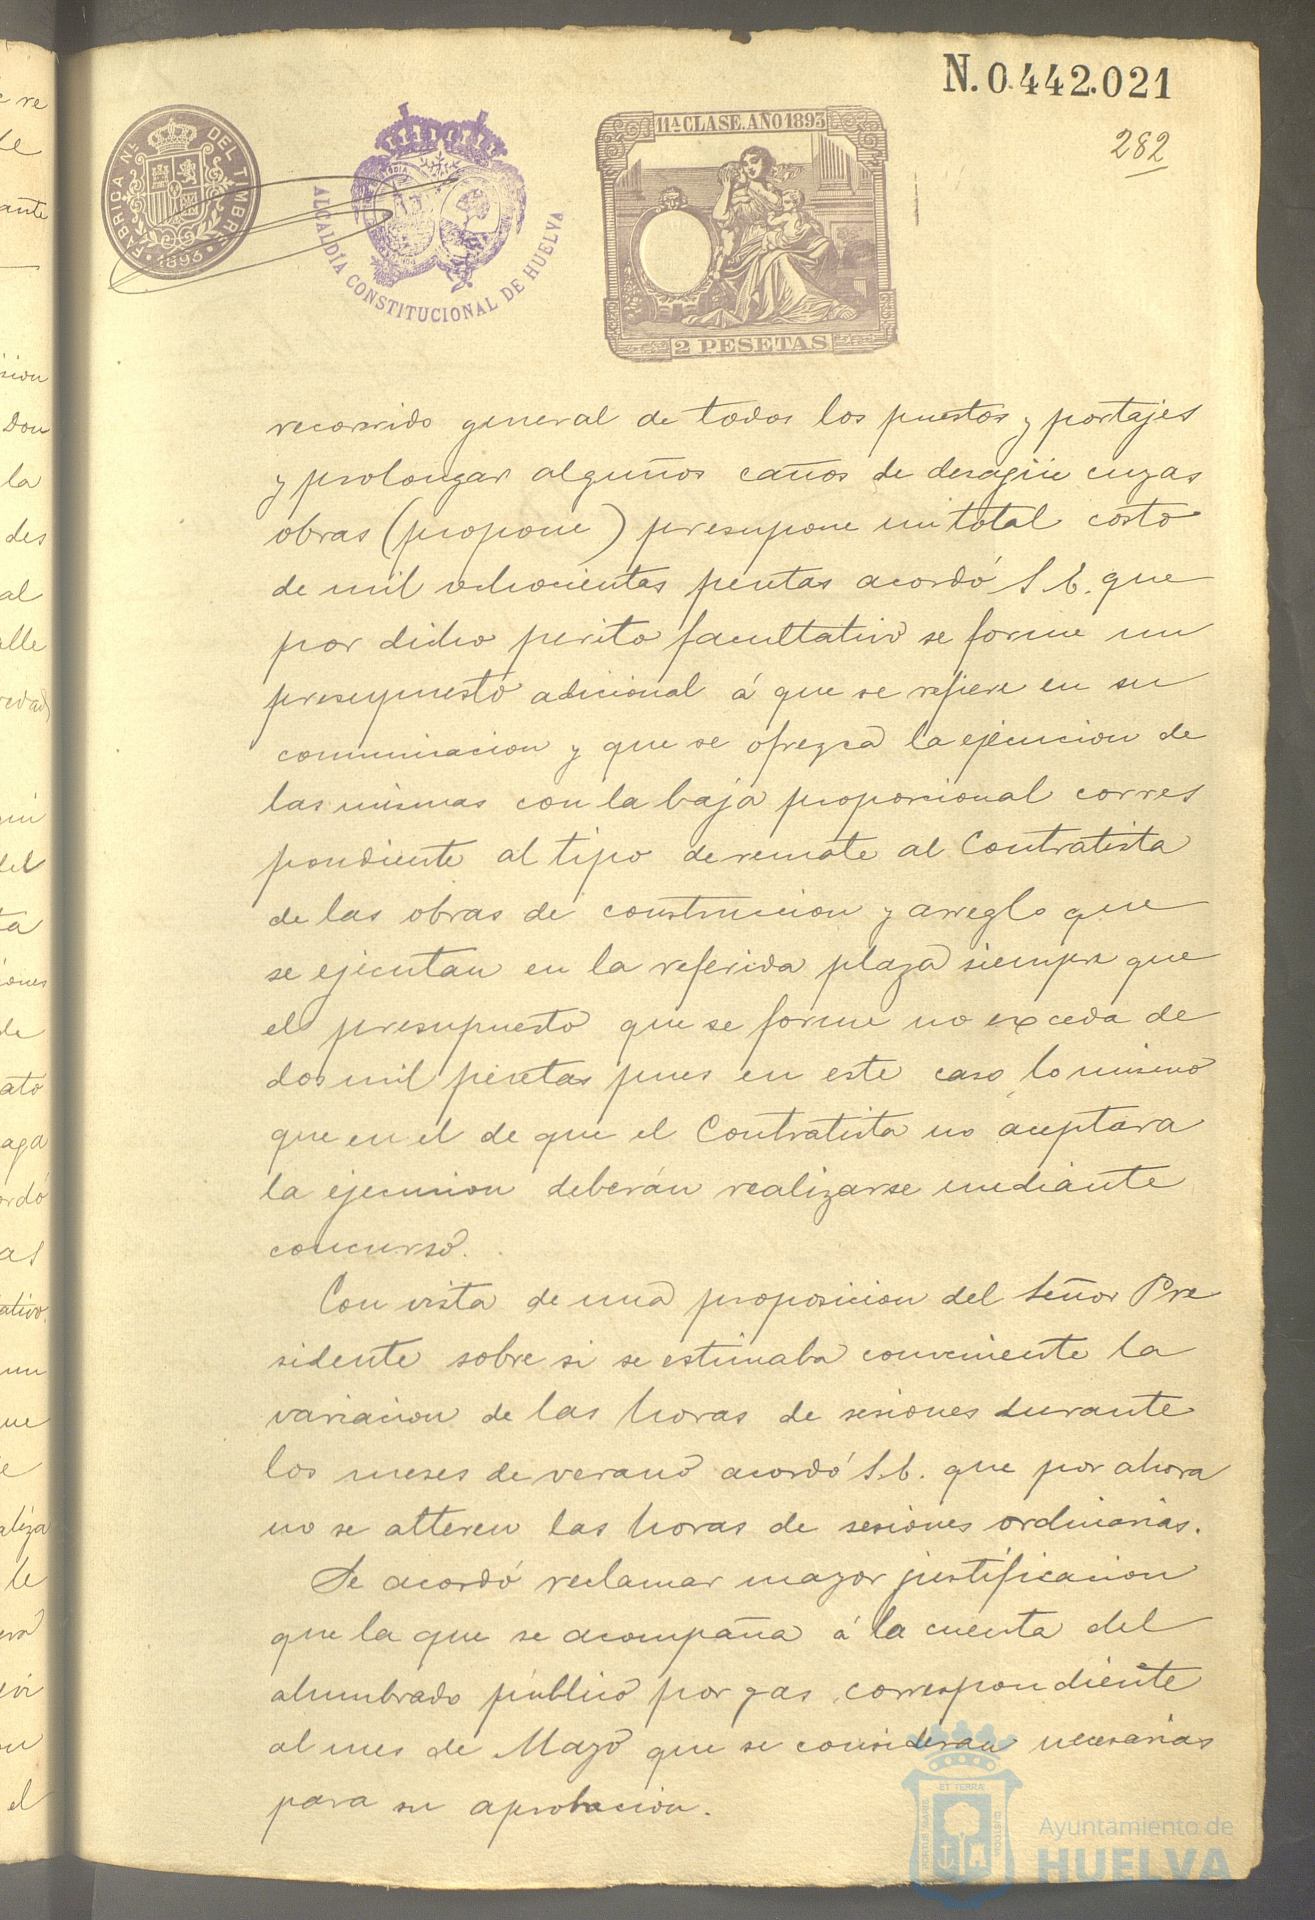 N. 0.442.021
282
FABRICA NL. DEL TIMBRE
1893
ALCALDÍA CONSTITUCIONAL DE HUELVA
11ª CLASE. AÑO 1893
2 PESETAS
recorrido general de todos los puestos y portajes
y prolongar algunos caños de desagüe cuyas
obras (propone) presupone un total costo
de mil ochocientas pesetas acordó S. E. que
por dicho perito facultativo se forme un
presupuesto adicional á que se refiere en su
comunicacion y que se ofrezca la ejecucion de
las mismas con la baja proporcional corres
pondiente al tipo de remate al Contratista
de las obras de construccion y arreglo que
se ejecutan en la referida plaza siempre que
el presupuesto que se forme no exceda de
dos mil pesetas pues en este caso, lo mismo
que en el de que el Contratista no aceptara
la ejecucion deberán realizarse mediante
concurso.
Con vista de una proposicion del Señor Pre
sidente sobre si se estimaba conveniente la
variacion de las horas de sesiones durante
los meses de verano acordó S. E. que por ahora
no se alteren las horas de sesiones ordinarias.
Se acordó reclamar mayor justificacion
que la que se acompaña á la cuenta del
alumbrado público por gas correspondiente
al mes de Mayo que se consideran necesarias
para su aprobacion.
Ayuntamiento de
HUELVA